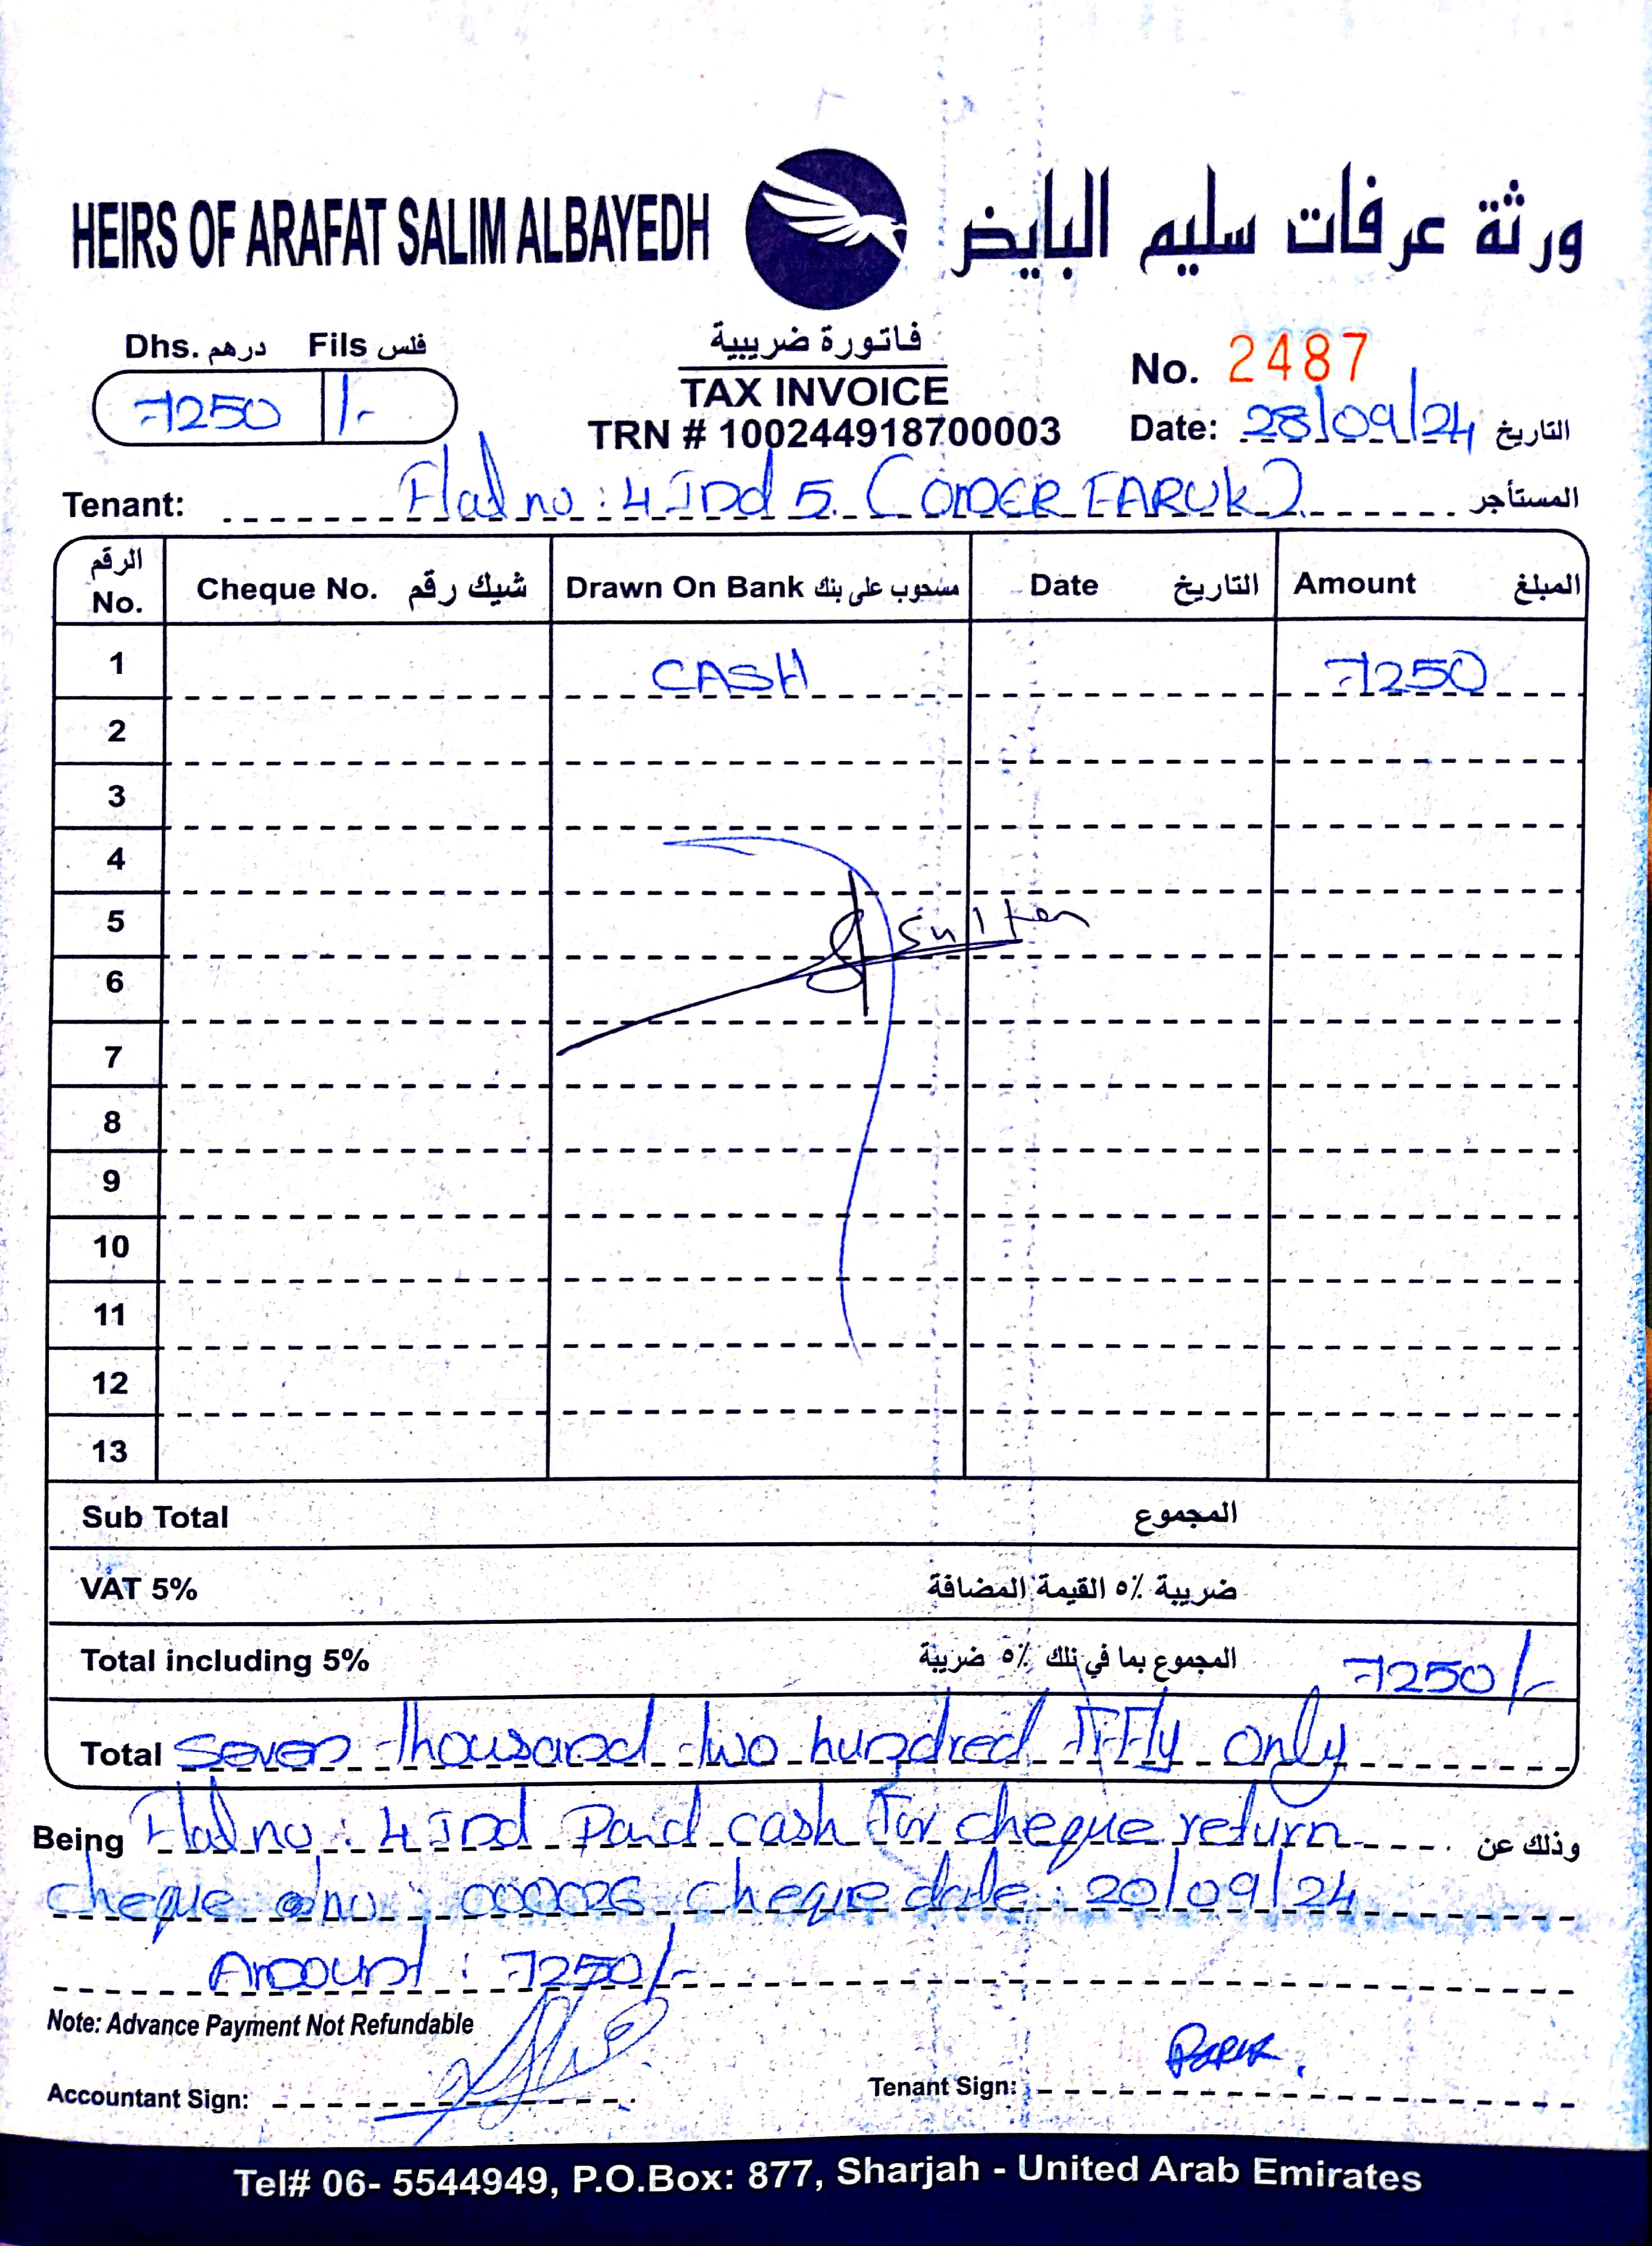 HEIRS OF ARAFAT SALIM ALBAYEDH ورثة عرفات سليم البايض
Dhs. درهم Fils فلس
7250 /-
فاتورة ضريبية
TAX INVOICE
TRN # 100244918700003
No. 2487
Date: 28/09/24 التاريخ
Tenant: Flat no : 4 Ind 5. (OMER FARUK) المستأجر
الرقم No. Cheque No. شيك رقم Drawn On Bank مسحوب على بنك Date التاريخ Amount المبلغ
1 CASH 7250
2
3
4
5 Sultan
6
7
8
9
10
11
12
13
Sub Total المجموع
VAT 5% ضريبة ٥٪ القيمة المضافة
Total including 5% المجموع بما في ذلك ٥٪ ضريبة 7250/-
Total Seven thousand two hundred fifty only
Being Flat no : 4 Ind Paid cash for cheque return وذلك عن
cheque no : 000026 cheque date : 20/09/24
Amount : 7250/-
Note: Advance Payment Not Refundable
Accountant Sign: Tenant Sign:
Tel# 06- 5544949, P.O.Box: 877, Sharjah - United Arab Emirates